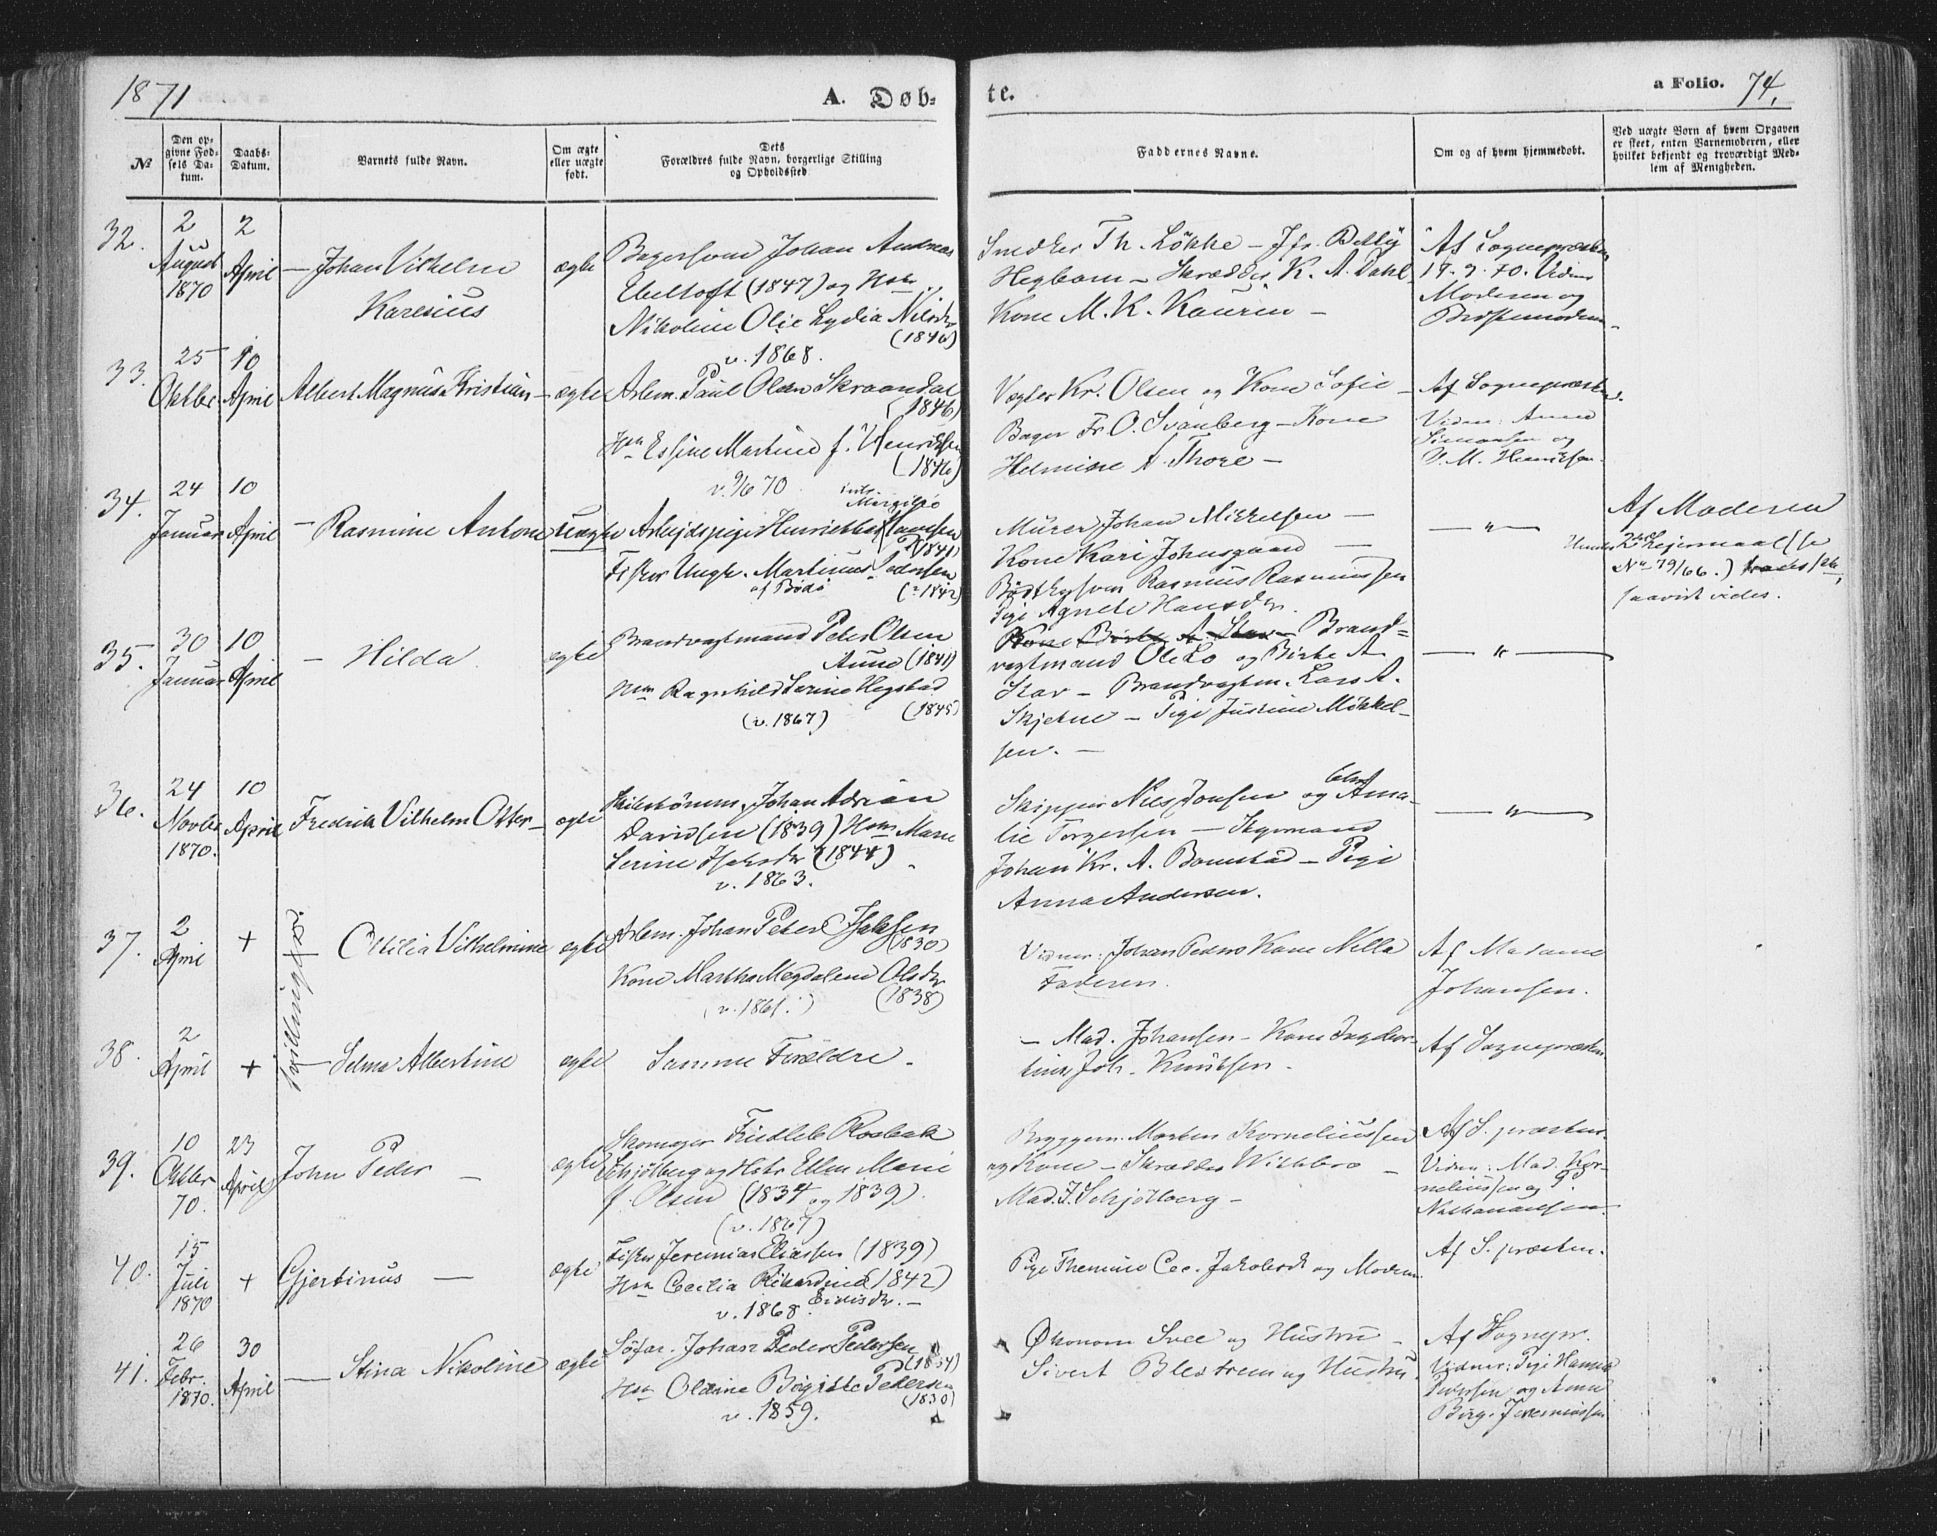 1871
A. Døb-
te.
a Folio. 74.
No
Den op-
givne Fød-
sels Da-
tum.
Daabs-
Datum.
Barnets fulde Navn.
Om ægte
eller uægte
født.
Dets
Forældres fulde Navn, borgerlige Stilling
og Opholdssted
Faddernes Navne.
Om og af hvem hjemmedøbt.
Ved uægte Børn af hvem Opgaven
er skeet, enten Barnemoderen, eller
hvilket bekjendt og troværdigt Med-
lem af Menigheden.
32.
2
August
1870
2
April
Johan Vilhelm
Karesius
ægte
Bagersvend Johan Andreas
Ebeltoft (1847) og Hstr.
Nikoline Olie Lydia Nilsdr
(1846)
v. 1868.
Snedker Th. Løkke – Jfr. Betty
Hegbom – Skrædder K. A. Dahl
Kone M. K. Kaurin –
Af Sognepræsten
Moderen og
33.
25
Oktbr.
10
April
Albert Magnus Kristian
ægte
Arbm. Paul Olsen Skraandal
(1846)
Martine f. Henriksen
(1846)
v. 9/6 70
Vægter Kr. Olsen og Kone Sofie –
Bager Fr. O. Svanberg – Kone
Helmine A. Thore –
Af Sognepræsten.
Vidner: Anna
Simonsen og
Henriksen.
34.
24
Januar
10
April
– Rasmine Antone
Uægte
Arbejdspige Henriette
(1841)
Fisker Ungk. Martinus Pedersen
af Bodø
(1842)
Murer Johan Mikkelsen –
Kone Kari Johnsgaard –
Bødkersvend Rasmus Rasmussen
Pige Agnete Hansdr.
– " –
Af Moderen
Hendes 2det Lejermaal (se
No 79/66.)
saavidt vides.
35.
30
Januar
10
April
– Hilda
ægte
Brandvagtmand Peter Olsen
Aune (1841)
Ragnhild Serine Hegstad
(v. 1867)
(1845)
Brand=
vagtmand Ole Lo og Birte A
Stav – Brandvagtm. Lars A.
Skjetne – Pige Justine Mikkel-
sen. –
– " –
36.
24
Novbr
1870.
10
April
Fredrik Vilhelm Otter
ægte
Johan Adrian
Davidsen (1839) Marie
Serine (1844)
v. 1863.
Skipper Nils Jonsen og Ama-
lie Torgersen – Styrmand
Johan Kr. A. Bonstad – Pige
Anna Andersen.
– " –
37.
2
April
+
Tvillingsøstre.
Ottilia Vilhelmine
ægte
Arbm. Johan Peter Isaksen
(1830)
Kone Martha Magdalene Olsdr
(v. 1861.)
(1838)
Vidner: Johan Peders Kone Nella
Faderen.
Af Madame
Johansen.
38.
2
April
+
– Selma Albertine
ægte
Samme Forældre –
– Mad. Johansen – Kone Ingebor-
Joh. Knutsen –
Af Sognepræsten
39.
10
Oktbr
70.
23
April
John Peder –
ægte
Skomager Fredlob Rosbak
Schjølberg og Hstr Ellen Marie
f. Olsen (1834 og 1839).
(v. 1867)
Bryggem. Morten Korneliussen
og Kone – Skrædder Witsbro –
Mad. J. Schjølberg –
Af S. præsten.
Vidner: Mad. Kor-
neliussen og
40.
15
Juli
1870
+
Gjertinus –
ægte
Fisker Jeremias Eliassen (1839)
Cecilia Rikardine (1842)
v. 1868.
Pige Themine Cec. Jakobsdr og Moderen
Af S. præsten.
41.
26
Febr.
1870.
30
April
– Stina Nikoline
ægte
Johan Peder Pedersen
(1834)
Oldine Birgitte Pedersen
(1830)
v. 1859.
Økonom Svee og Hustru –
Sivert Blestrem og Hustru.
Af Sognepr.
Vidner: Pige Hanna
Pedersen og Anne
Birg. Jeremiassen